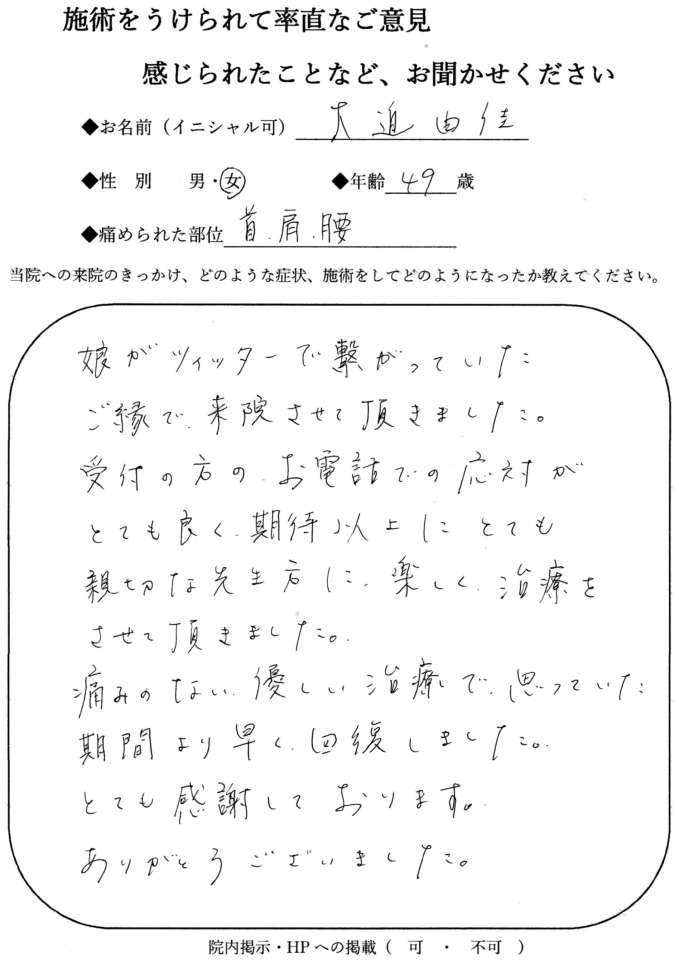 施術をうけられて率直なご意見
感じられたことなど、お聞かせください
◆お名前（イニシャル可） 大迫由佳
◆性　別　　男・女　　◆年齢 49 歳
◆痛められた部位 首.肩.腰
当院への来院のきっかけ、どのような症状、施術をしてどのようになったか教えてください。
娘がツイッターで繋がっていた
ご縁で、来院させて頂きました。
受付の方の、お電話での応対が
とても良く、期待以上に とても
親切な先生方に、楽しく、治療を
させて頂きました。
痛みのない、優しい治療で、思っていた
期間より早く、回復しました。
とても感謝しております。
ありがとうございました。
院内掲示・HPへの掲載（　可　・　不可　）